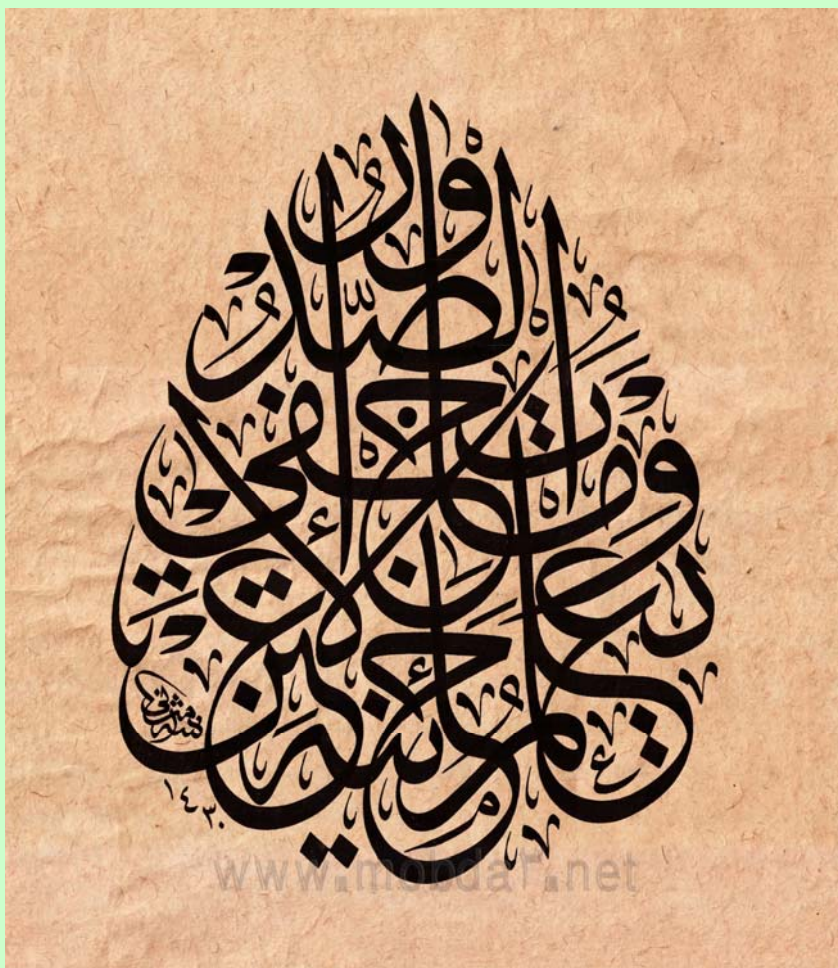 يعلم خائنة الأعين وما تخفي الصدور
١٤٣٠
www.mobdar.net